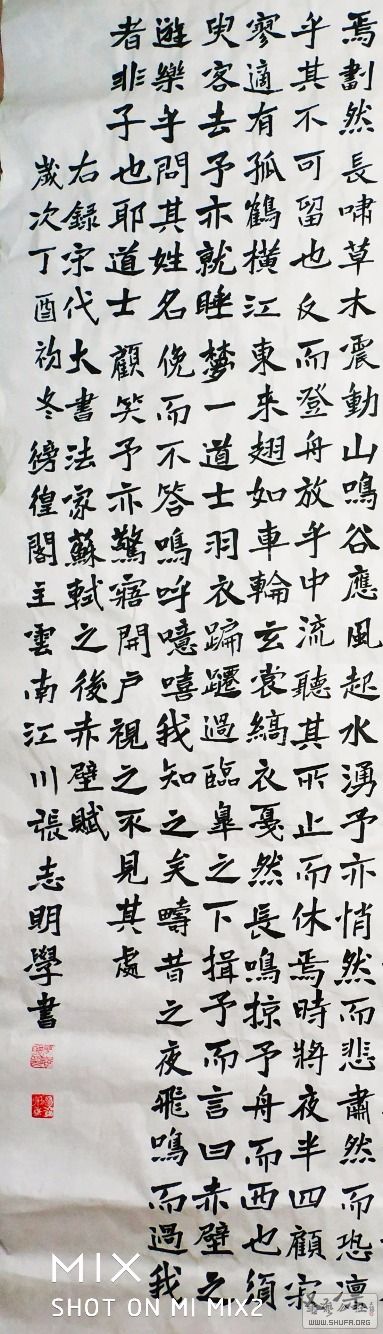 焉劃然長嘯草木震動山鳴谷應風起水湧予亦悄然而悲肅然而恐凛
乎其不可留也反而登舟放乎中流聽其所止而休焉時將夜半四顧寂
寥適有孤鶴橫江東來翅如車輪玄裳縞衣戛然長鳴掠予舟而西也須
臾客去予亦就睡夢一道士羽衣蹁躚過臨皐之下揖予而言曰赤壁之
遊樂乎問其姓名俛而不答嗚呼噫嘻我知之矣疇昔之夜飛鳴而過我
者非子也耶道士顧笑予亦驚寤開户視之不見其處
右錄宋代大書法家蘇軾之後赤壁賦
歲次丁酉初冬徬徨閣主雲南江川張志明學書
MIX
SHOT ON MI MIX2
WWW.SHUFA.ORG